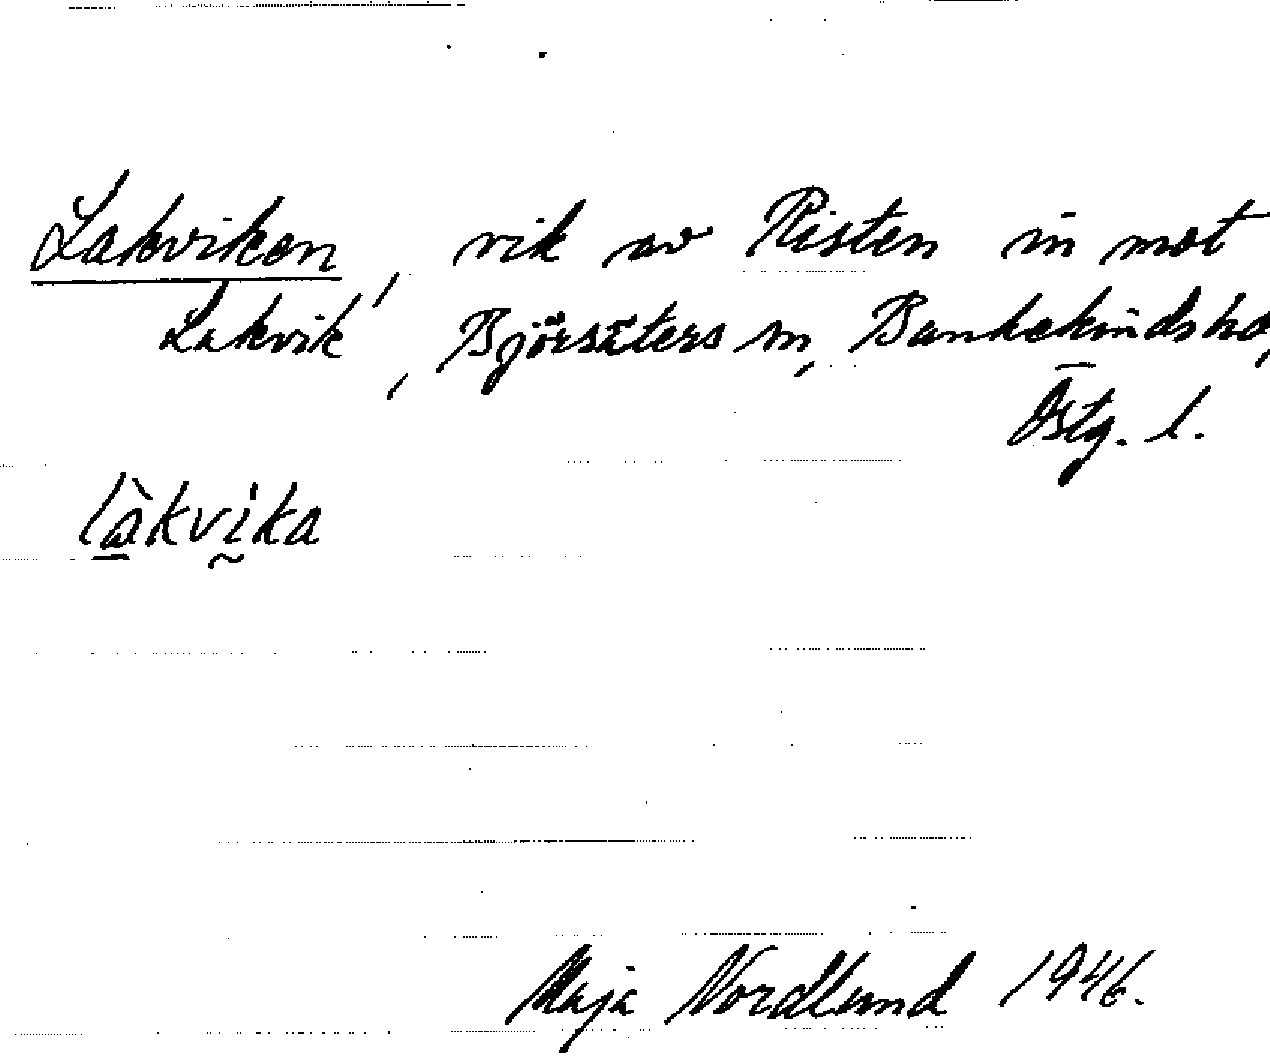 Lakviken, vik av Risten in mot
Lakvik, Björsäters sn, Bankekinds hd,
Östg. l.
là̱kvḭ̍ka
Maja Nordlund 1946.